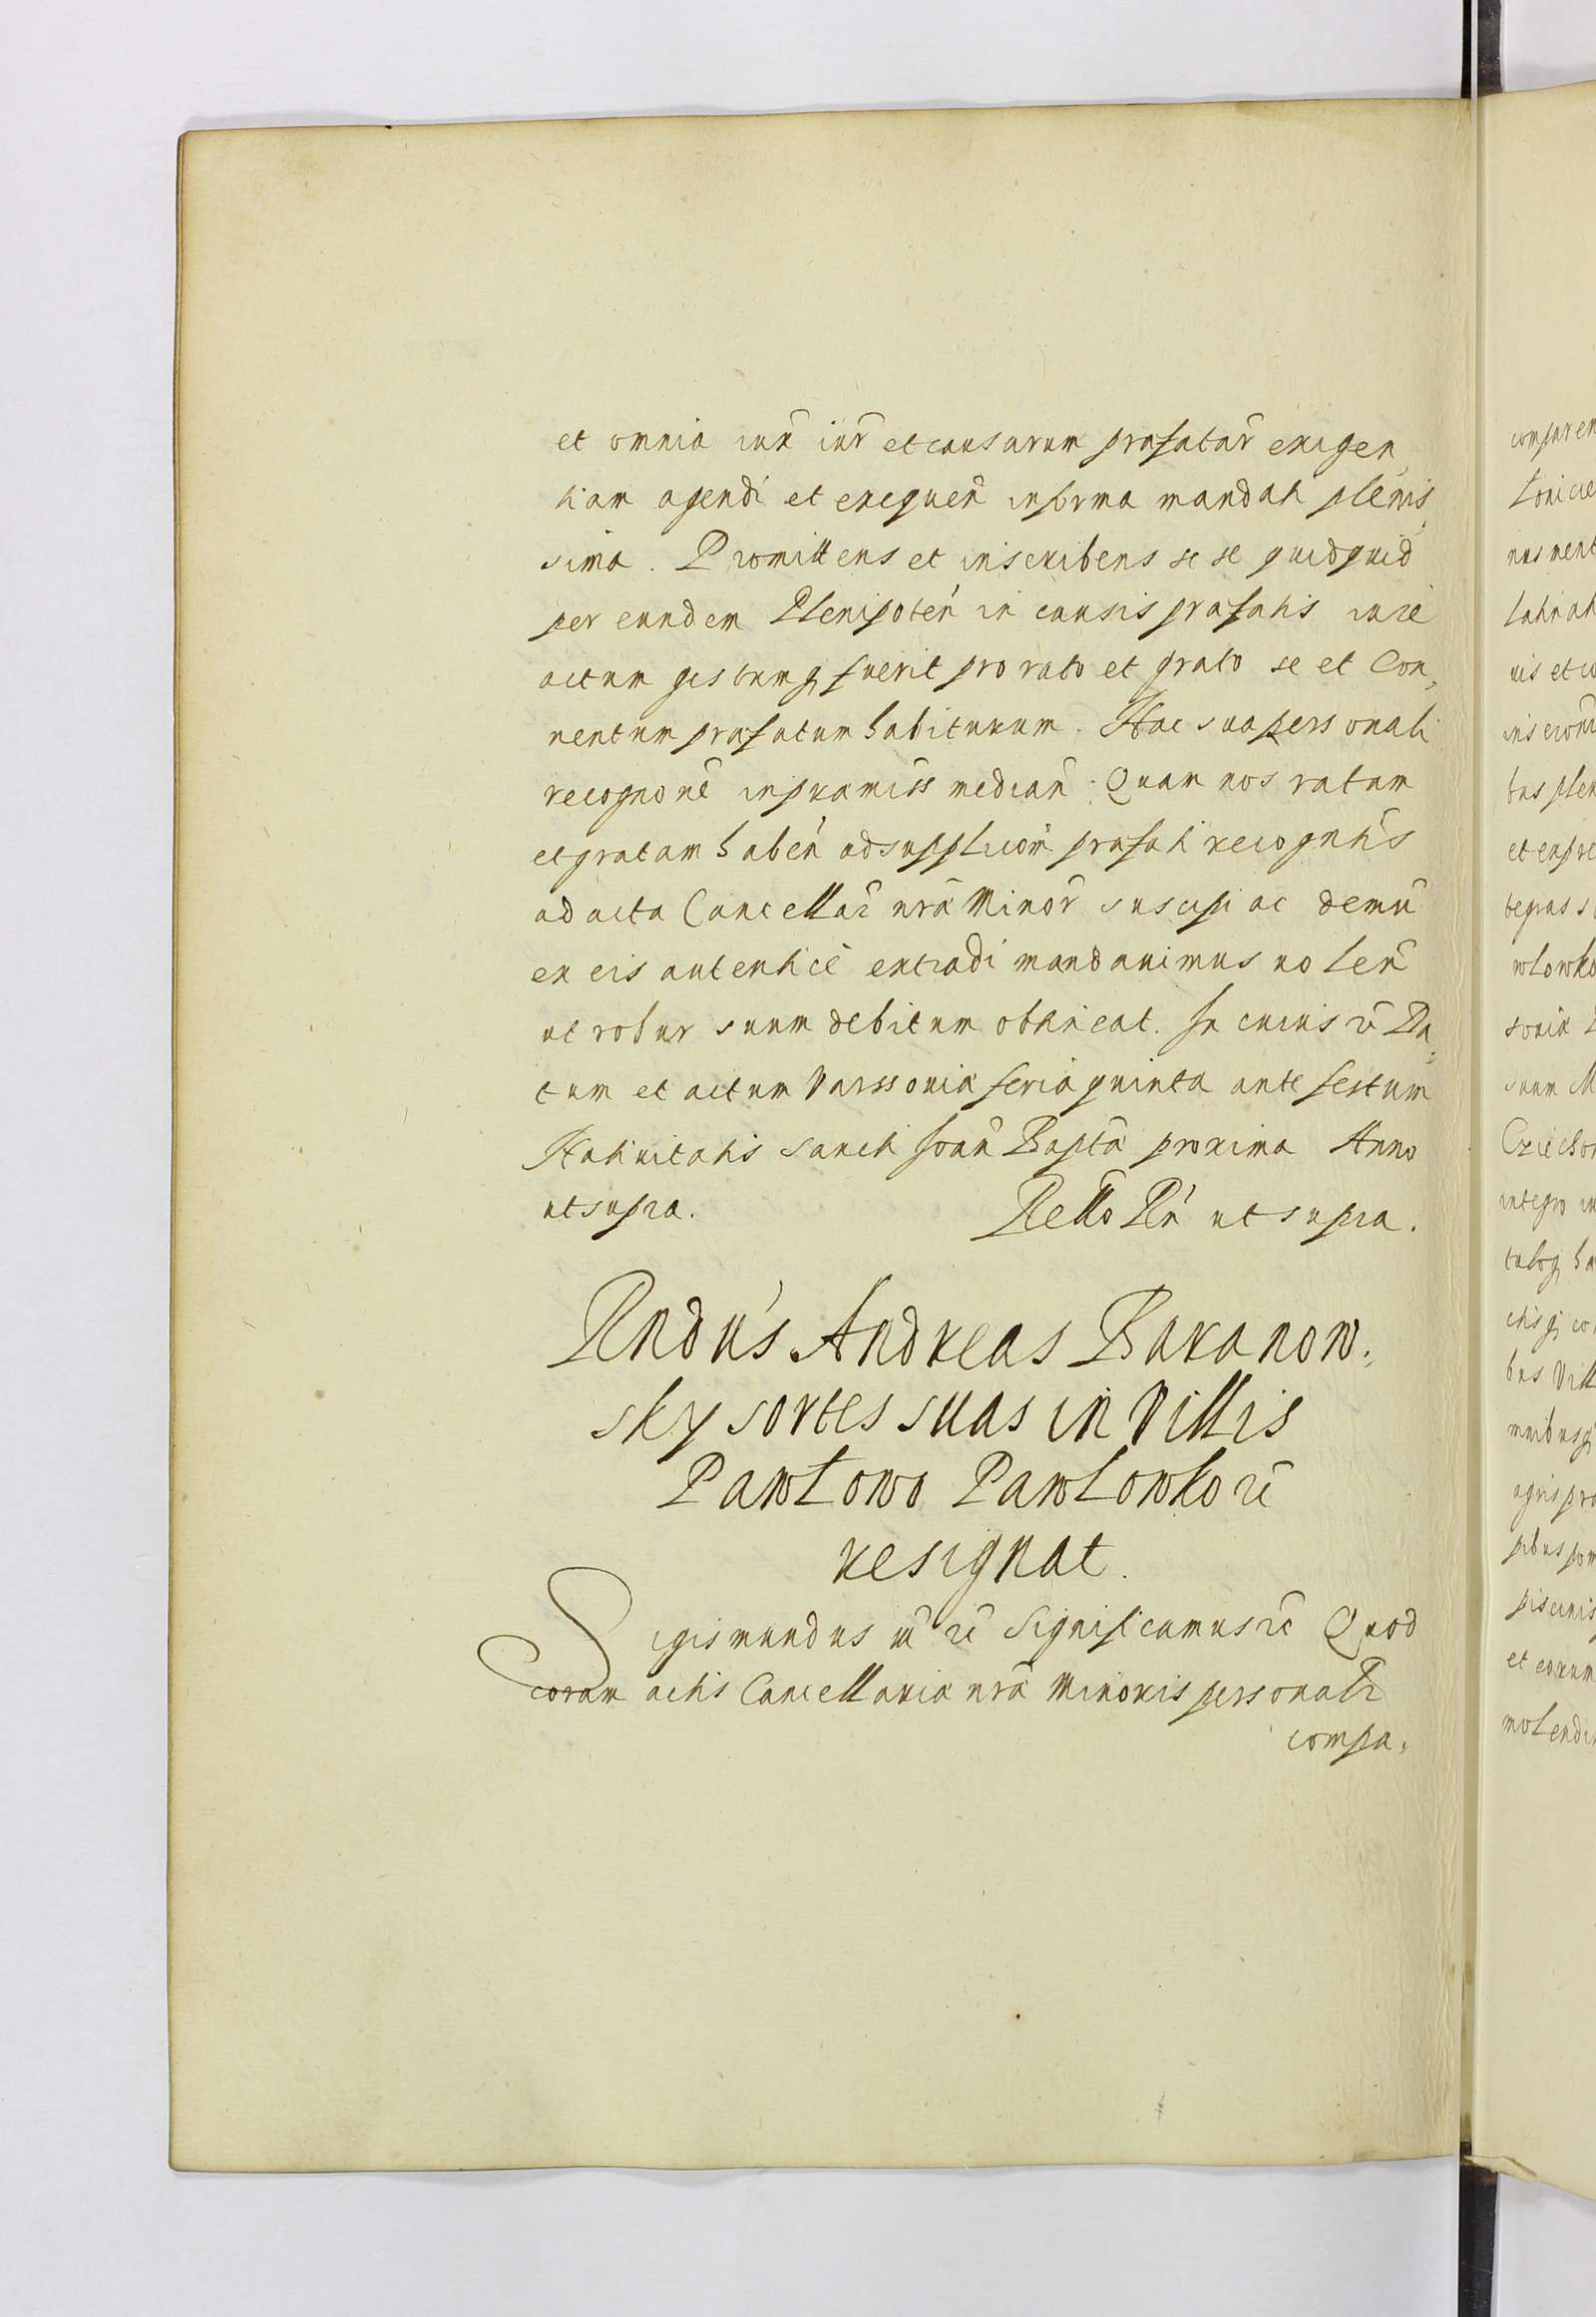 et omnia iux̃ iur̃ et causarum præfatar̃ exigen,
tiam agendi et exequeñ in forma mandati plenis,
sima. Promittens et inscribens se se quidquid
per eundem Plenipoteñ in causis præfatis iure
actum gestumq fuerit pro rato et grato se et Con,
uentum præfatum habiturum. Hac sua personali
recognõne in præmiss mediañ. Quam nos ratam
et gratam habeñ ad supplicõm præfati recogntis
ad acta Cancellar̃ nr̃æ Minor̃ suscipi ac demũ
ex eis autentice extradi mandauimus uoleñ
ut robur suum debitum obtineat. In cuius rẽ Da,
tum et actum Varssouiæ feria quinta ante festum
Natiuitatis Sancti Joañ Baptæ proxima Anno
ut supra. Rello Rñ ut supra.
Rndus Andreas Baranow,
sky sortes suas in Villis
Pawłowo Pawłowko rẽ
resignat.
Sigismundus iũ rẽ Significamus rẽ Quod
coram actis Cancellariæ nr̃æ Minoris personalr
compa,
comparen
nus
uis et co
bus plen
et expre
tegras s
wlowko
souiæ
suum M
Cziechon
integro in
bus Vill
agris pra
piscinis
et eorum
molendin